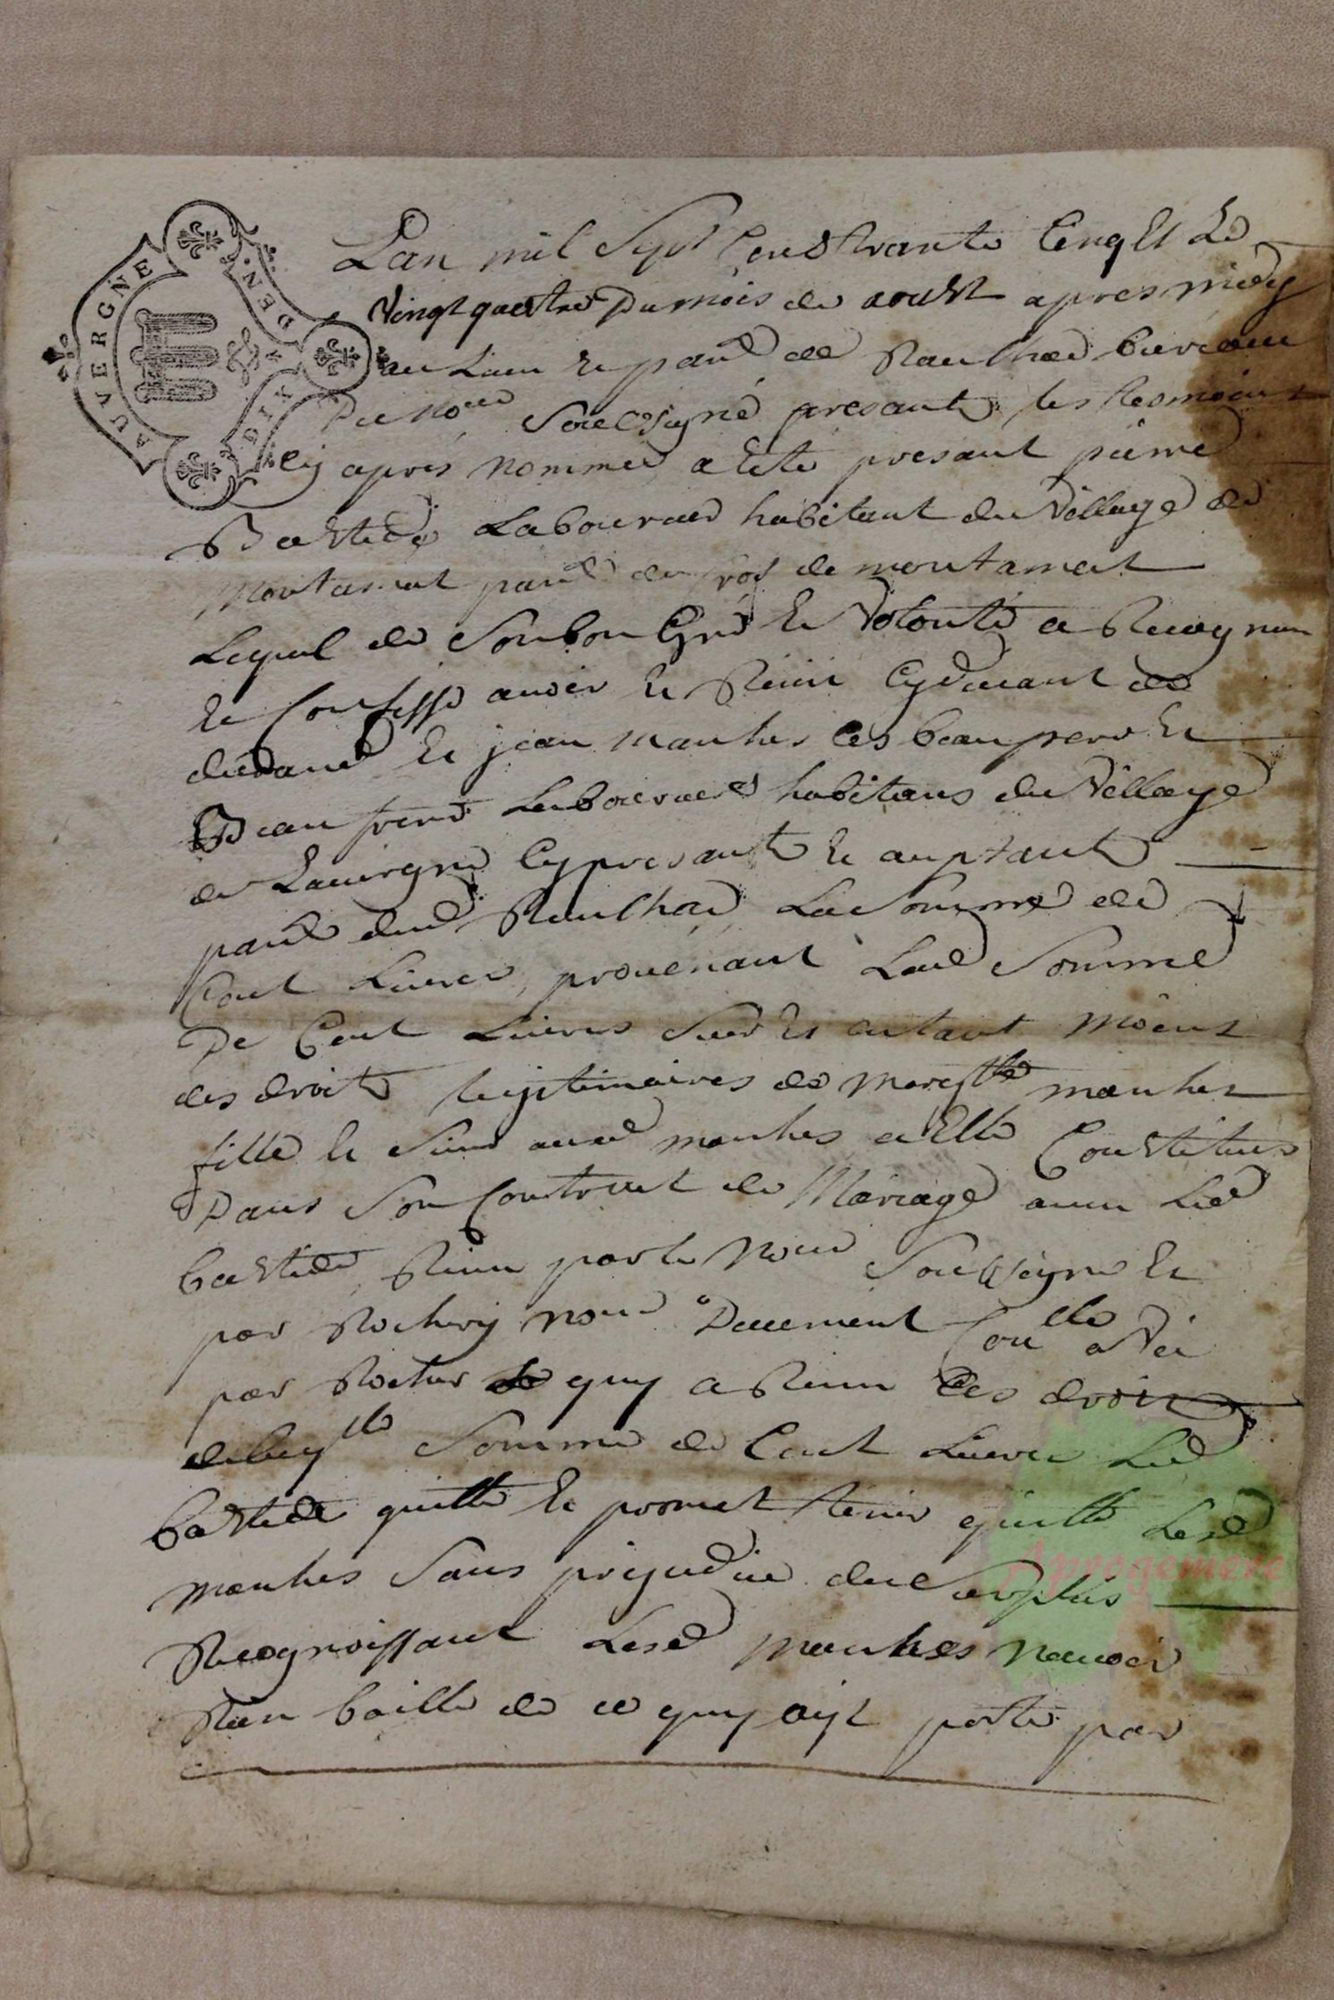 AUVERGNE
DEN.
DIX
Lan mil Sept Cens trante Cinq Et Le
vingt quatre Du mois de aoust apres midy
au Lieu et parr de Raulhac bureau
Du no.re Soussigné presants les tesmoins
Cy après nommes a Esté presant pierre
Bastide Laboureur habitant du Village de
Montamat parr de de montamat
Lequel de Son bon Gré Et Volonté a Recognu
Et Confessé avoir Et Reçu Cy devant de
durand Et jean manhes Ses beau pere Et
Beau frere Laboureurs habitans du Village
de Lavergne Cy presants Et auptants
parr dud Raulhac La Somme de
Cent Livres, provenant Lad Somme
De Cent Livres Sur Et autant Moins
des droits legitimaires de manhes
fille Et Sieur aud manhes a Elle Constitués
Dans Son Contract de Mariage avec Led
bastide Reçu par le No.re Soussigné Et
par no.re Controllé
par qui a Reçu Les droits
de laq.lle Somme de Cent Livres Led
bastide quitte Et promet tenir quitte Lesd
manhes Sans prejudice du Surplus
Recognoissant Lesd manhes navoir
Rien baille de ce quy Est porté par
Aprogemere